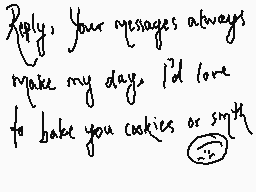 Reply, Your messages always
make my day, I'd love
to bake you cookies or smth